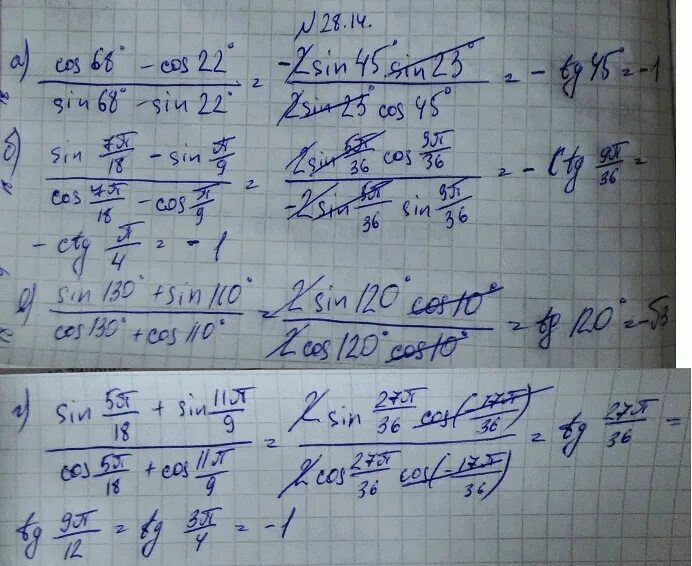 № 28.14.
а) (cos 68° - cos 22°)/(sin 68° - sin 22°) = (-2 sin 45° sin 23°)/(2 sin 23° cos 45°) = - tg 45° = -1
б) (sin 7π/18 - sin π/9)/(cos 7π/18 - cos π/9) = (2 sin 5π/36 cos 9π/36)/(-2 sin 5π/36 sin 9π/36) = - ctg 9π/36 =
- ctg π/4 = - 1
в) (sin 130° + sin 110°)/(cos 130° + cos 110°) = (2 sin 120° cos 10°)/(2 cos 120° cos 10°) = tg 120° = -√3
г) (sin 5π/18 + sin 11π/9)/(cos 5π/18 + cos 11π/9) = (2 sin 27π/36 cos(-17π/36))/(2 cos 27π/36 cos(-17π/36)) = tg 27π/36 =
tg 9π/12 = tg 3π/4 = -1